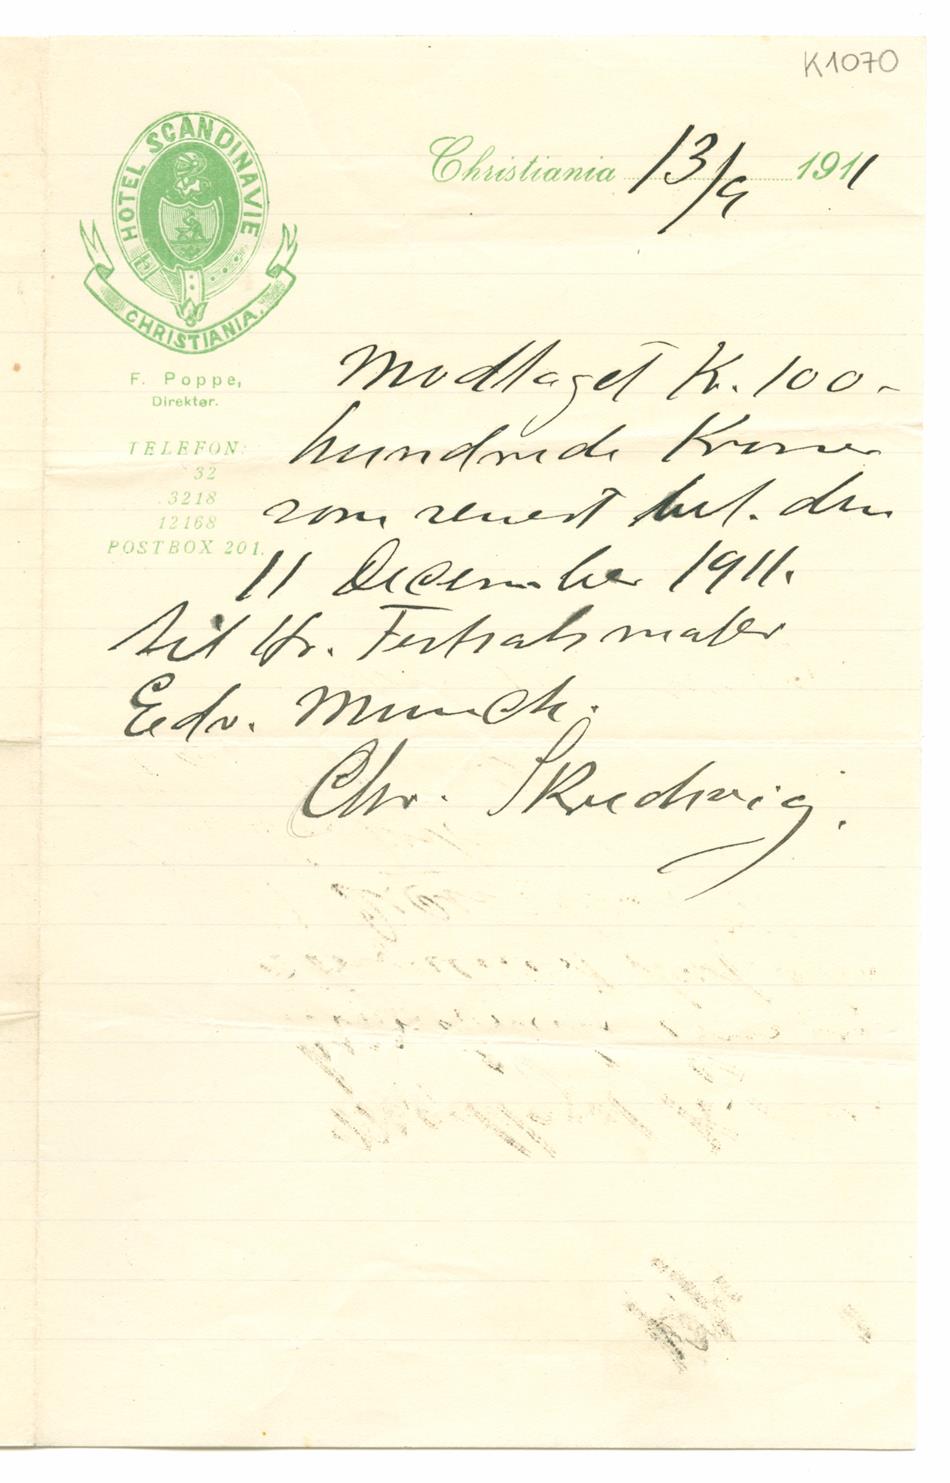 K1070
HOTEL SCANDINAVIE
CHRISTIANIA.
Christiania 13/9 1911
F. Poppe,
Direktør.
TELEFON:
32
3218
12168
POSTBOX 201.
Modtaget Kr. 100-
hundrede Kroner
som senest bet. den
11 December 1911.
til Hr. Portrætmaler
Edv. Munch.
Chr. Skredsvig.